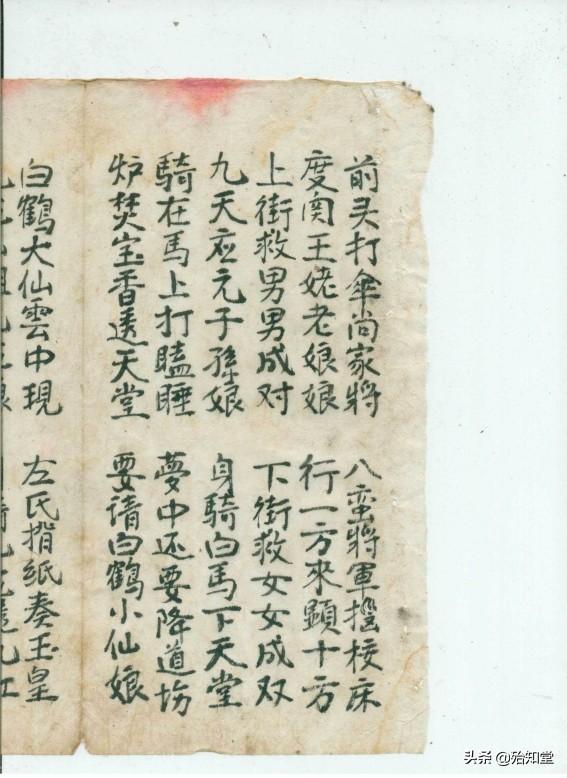 前头打傘尚家將 八蛮將軍校床
度関王姥老娘娘 行一方來顕十方
上街救男男成对 下街救女女成双
九天应元子孫娘 身騎白馬下天堂
騎在馬上打瞌睡 夢中还要降道场
炉焚宝香透天堂 要请白鶴小仙娘
白鶴大仙雲中現 左氏揹紙奏玉皇
头条 @殆知堂